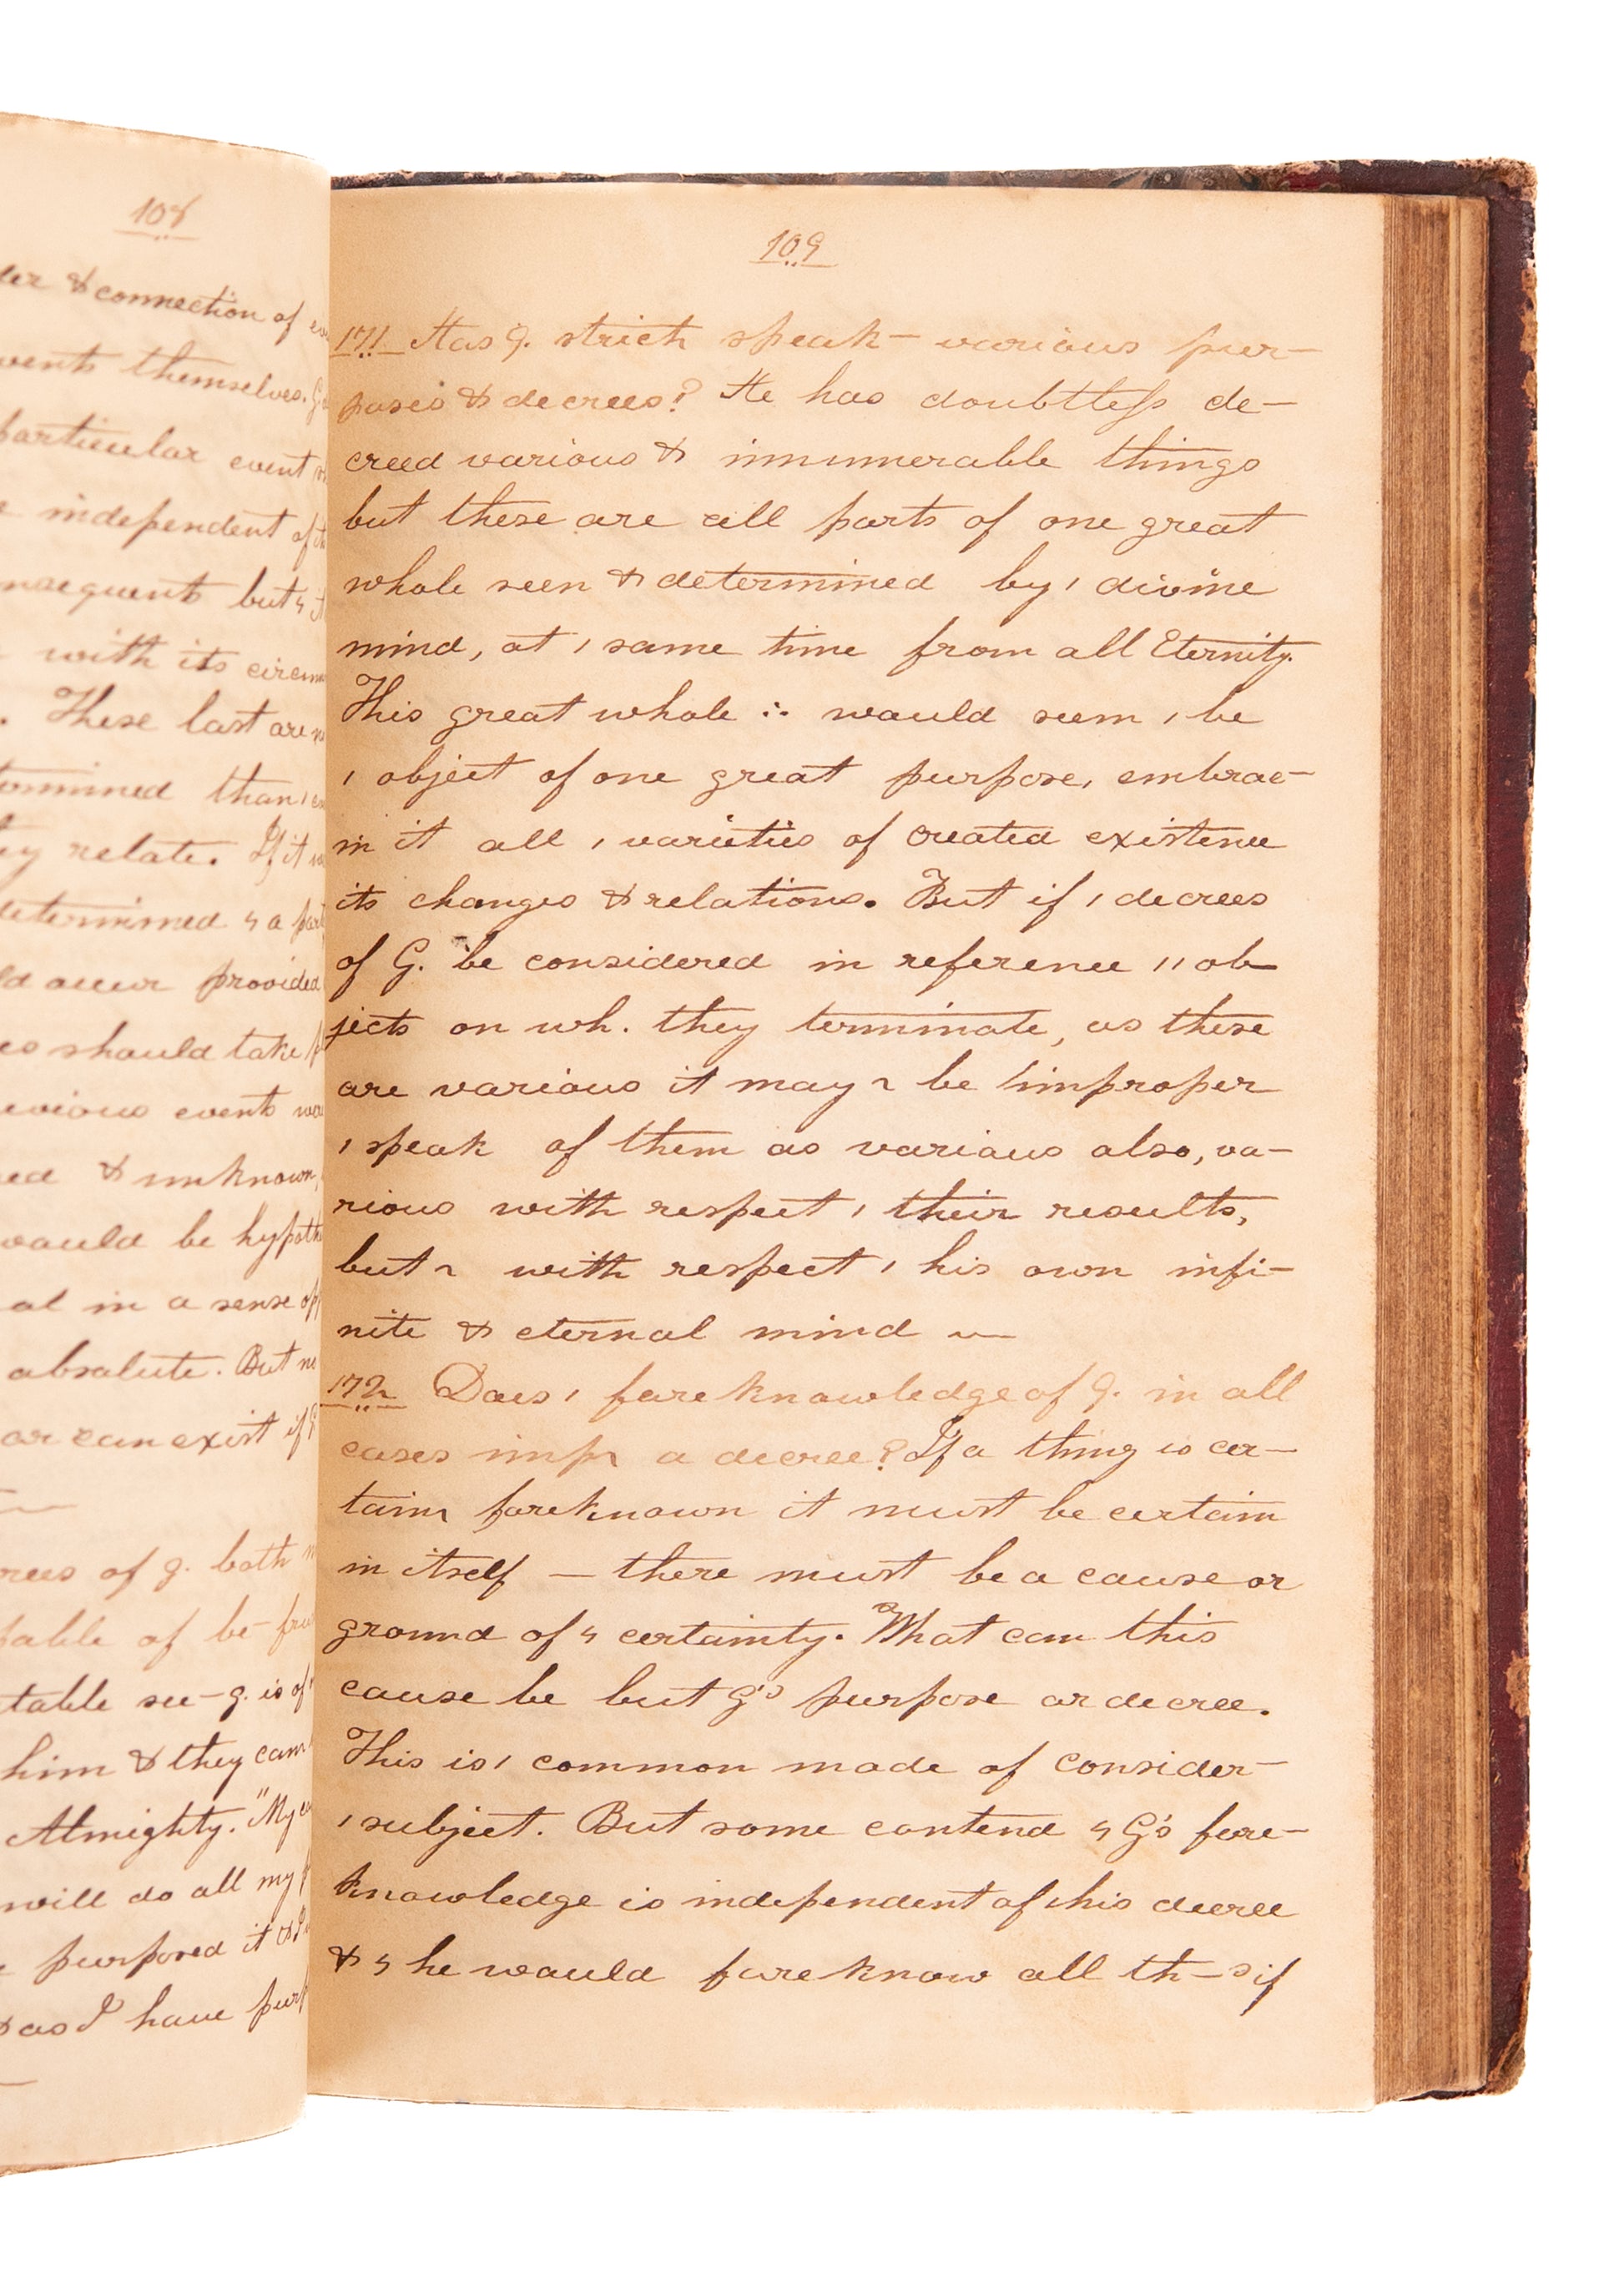 108
& connection of
vents themselves.
particular event
independent of
nsequent but ɥ
with its circum
. These last are
ermined than ,
ey relate. If it
determined ɥ a
ld occur provided
es should take
evious events
ed & unknown,
would be hypoth
al in a sense
absolute. But
or can exist if
rees of g. both
table of be- fru
table see- g. is of
him & they can
Almighty. "My
will do all my
purposed it &
& as I have purp
109
171 Has G. strich speak- various pur-
poses & decrees? He has doubtless de-
creed various & innumerable things
but these are all parts of one great
whole seen & determined by , divine
mind, at , same time from all Eternity.
This great whole ∴ would seem , be
, object of one great purpose, embrac-
in it all , varieties of created existence
its changes & relations. But if , decrees
of G. be considered in reference , , ob-
jects on wh. they terminate, as these
are various it may ~ be improper
, speak of them as various also, va-
rious with respect , their results,
but ~ with respect , his own infi-
nite & eternal mind ~
172 Does , foreknowledge of G. in all
cases imp a decree? If a thing is cer-
tain foreknown it must be certain
in itself — there must be a cause or
ground of ɥ certainty. What can this
cause be but G's purpose or decree.
This is , common mode of consider-
, subject. But some contend ɥ G's fore-
knowledge is independent of his decree
& ɥ he would foreknow all th-s if